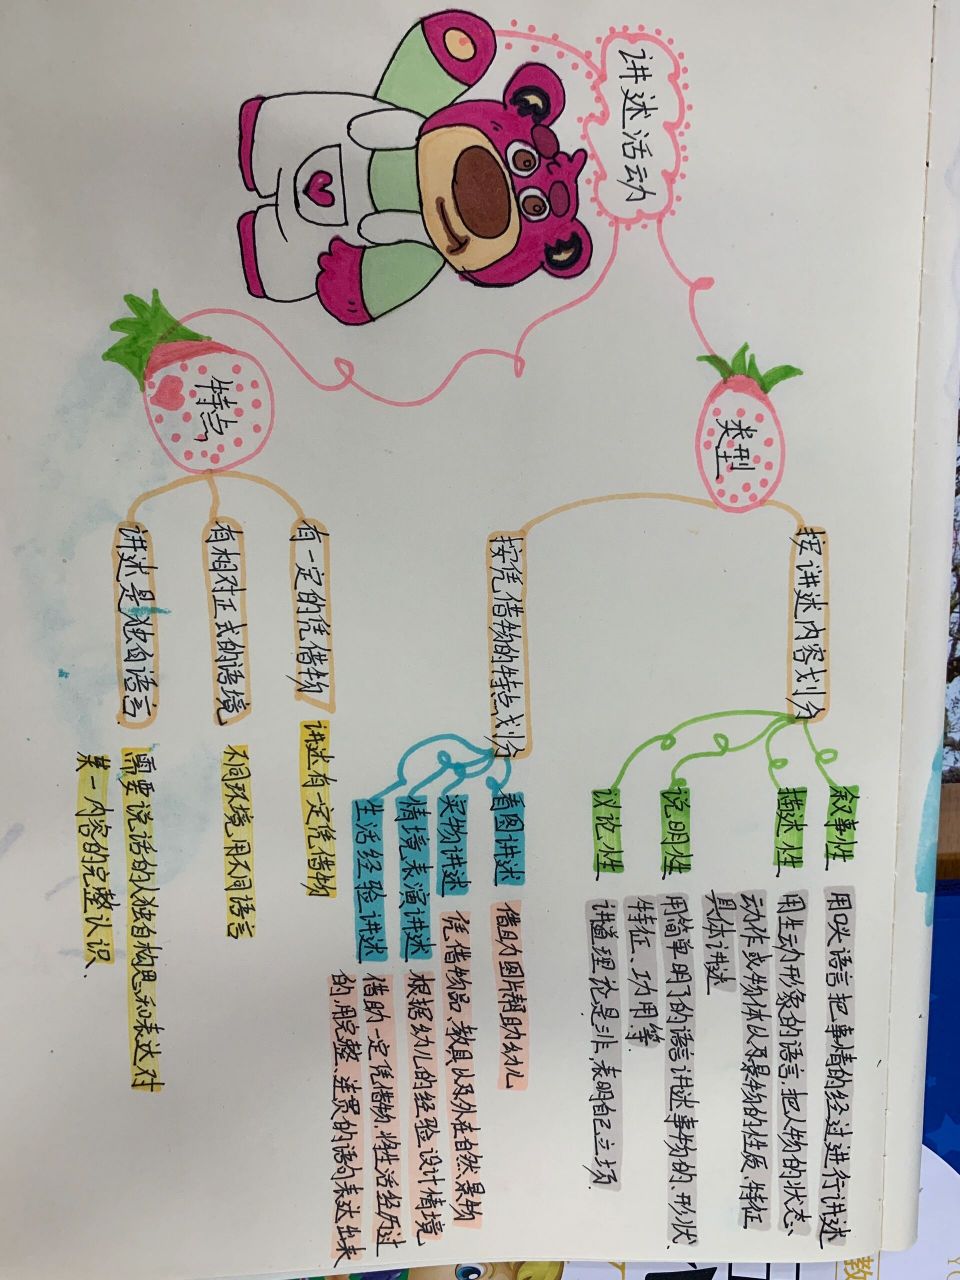 讲述活动
类型
按讲述内容划分
叙事性
用口头语言把事情的经过进行讲述
描述性
用生动形象的语言,把人物的状态、
动作或物体以及景物的性质、特征
具体讲述
说明性
用简单明了的语言讲述事物的、形状、
特征、功用等.
议论性
讲道理论是非,表明自己立场.
按凭借物的特点划分
看图讲述
借助图片帮助幼儿
实物讲述
凭借物品、教具以及外在自然景物
情境表演讲述
根据幼儿的经验设计情境
生活经验讲述
借助一定凭借物,将生活经历过
的,用完整、连贯的语句表达出来
特点
有一定的凭借物
讲述有一定凭借物
有相对正式的语境
不同环境用不同语言
讲述是独白语言.
需要说话的人独自构思和表达对
某一内容的完整认识、